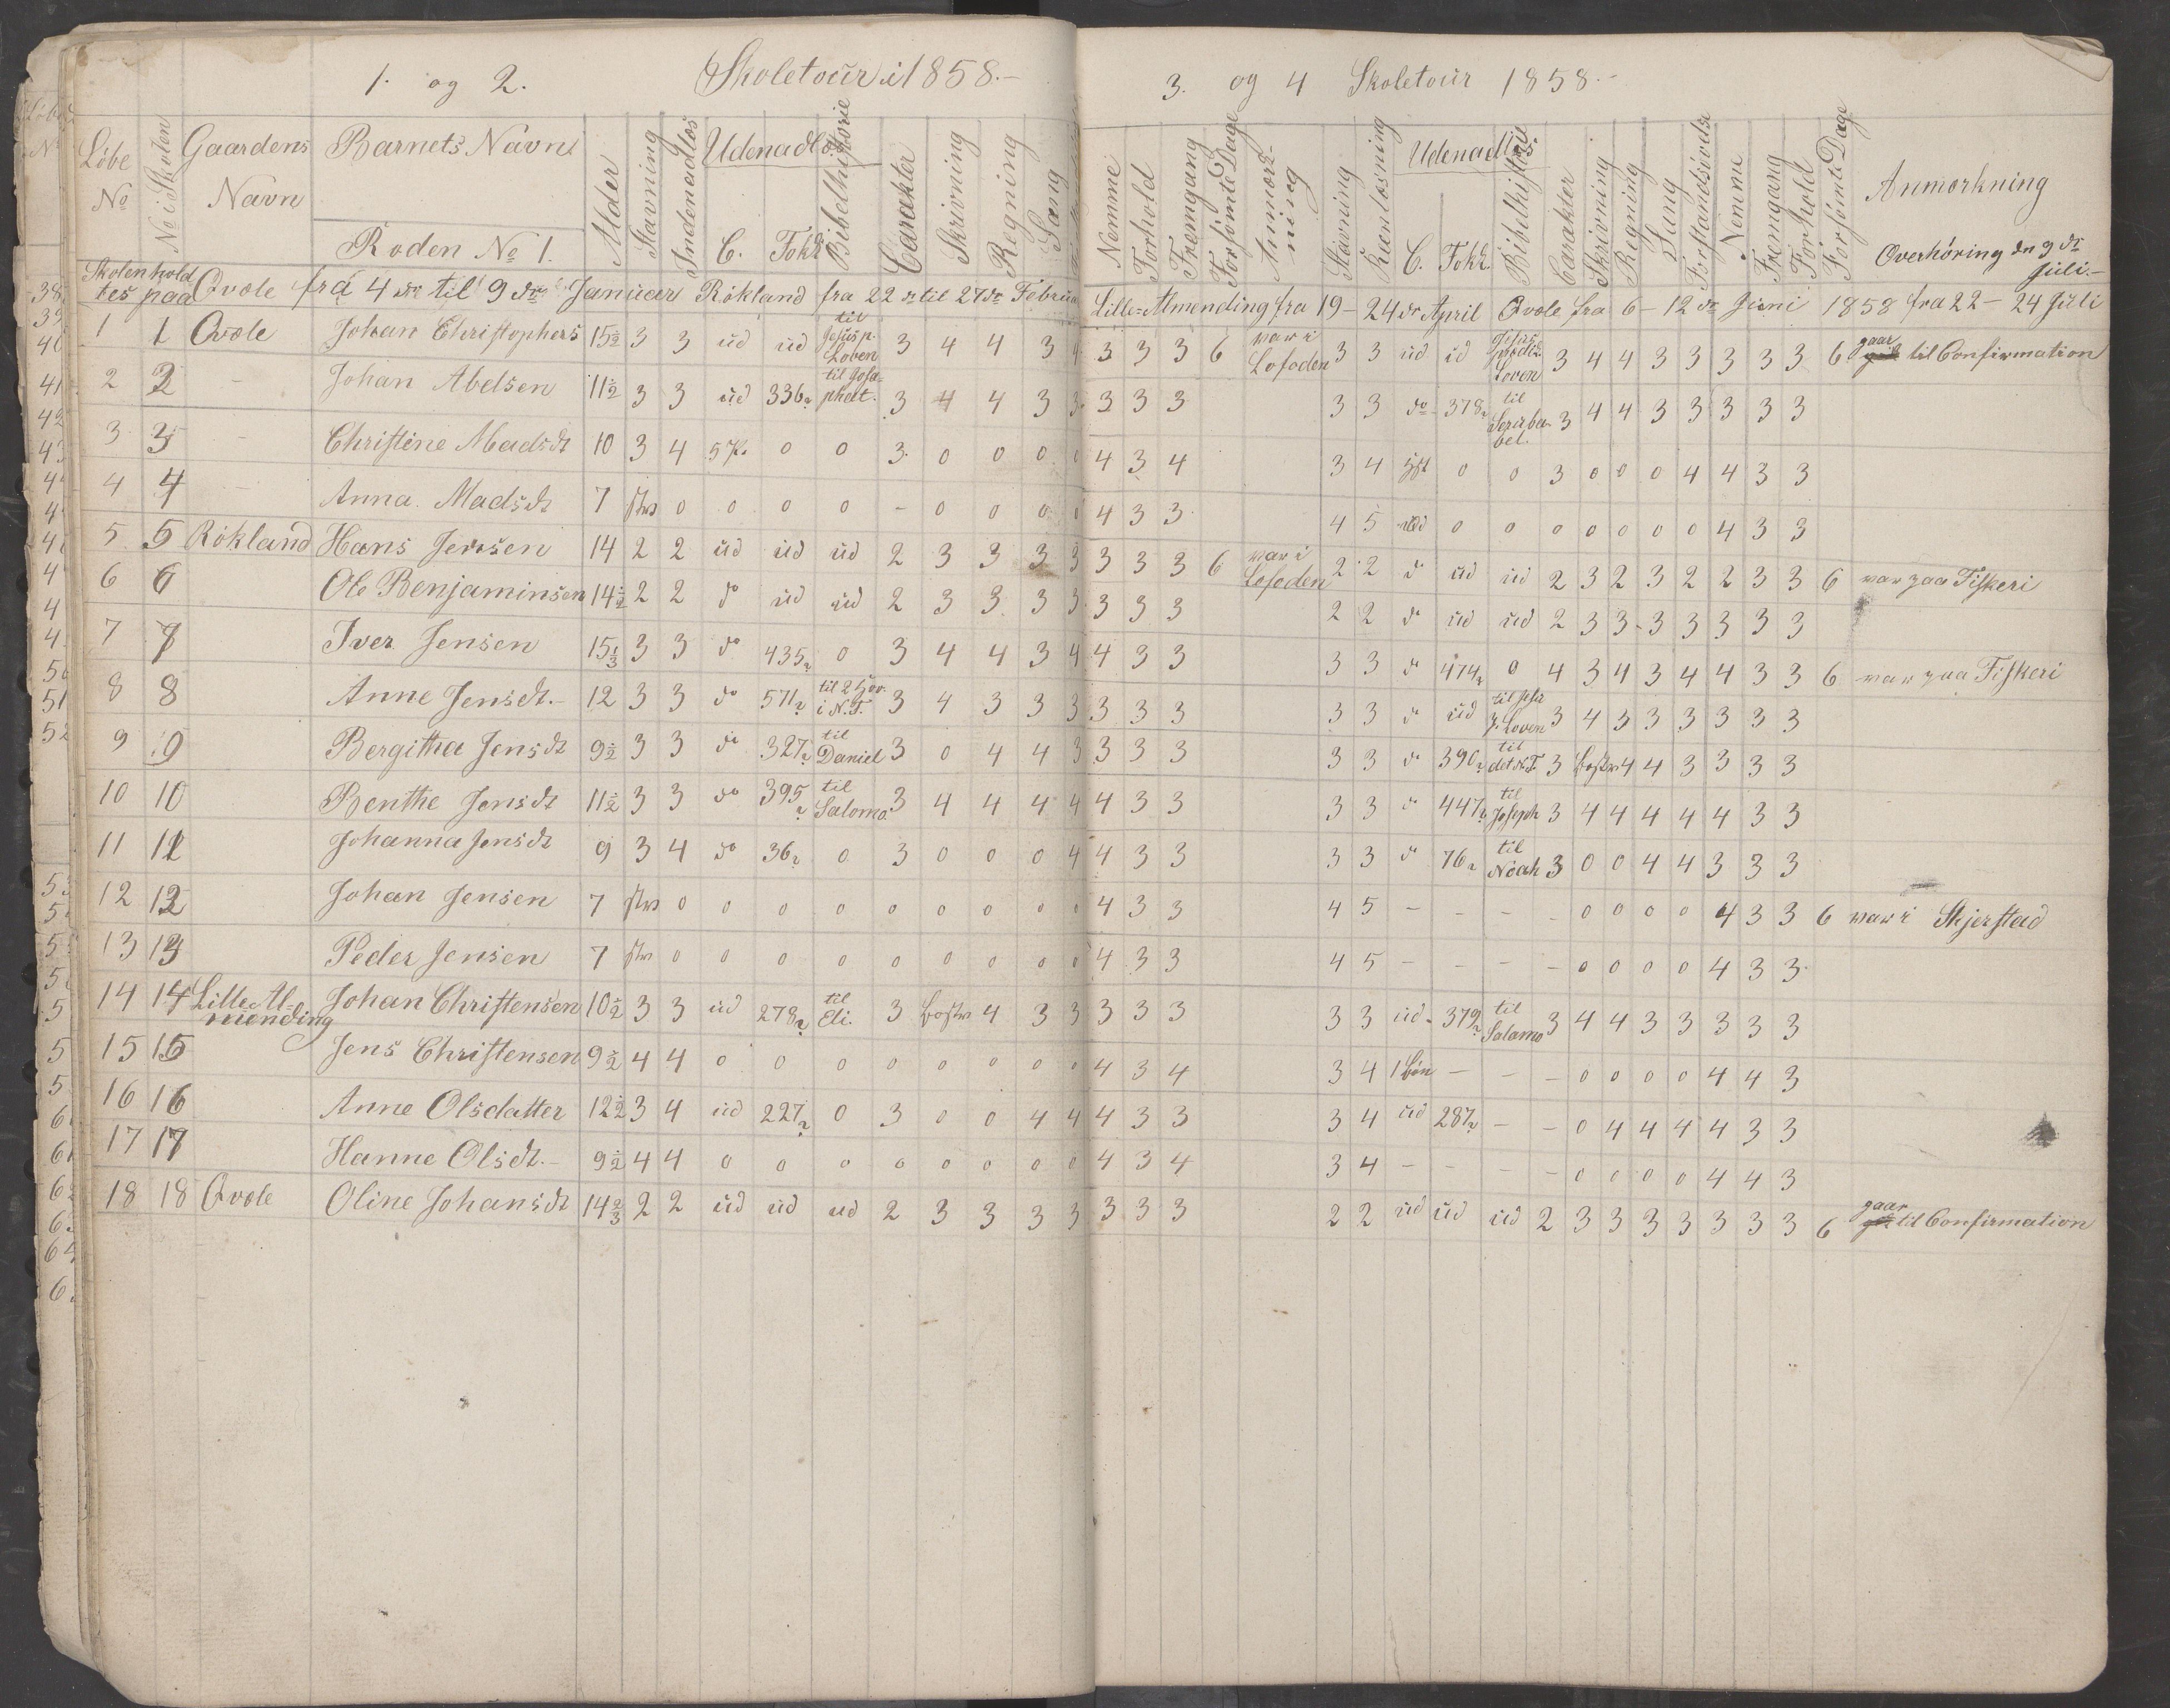 1. og 2. Skoletour i 1858.-
Løbe No
No i Skolen
Gaardens Navn
Barnets Navn
Roden No 1.
Alder
Stavning
Indenadlæs
Udenadlæs
C. Fokl. Bibelhistorie
Carakter
Skrivning
Regning
Sang
Skolen holdtes paa Qvæle fra 4de til 9de Januar Røkland fra 22de til 27de Februa
1 1 Qvæle Johan Christophers 15½ 3 3 ud ud til Jesus p. Loven 3 4 4 3 4
2 2 - Johan Abelsen 11½ 3 3 ud 336 til Josaphat. 3 4 4 3 3
3 3 - Christine Madsdt 10 3 4 5 P. 0 0 3 0 0 0 0
4 4 - Anna Madsdt 7 stav 0 0 0 0 - 0 0 0 0
5 5 Røkland Hans Jensen 14 2 2 ud ud ud 2 3 3 3 3
6 6 Ole Benjaminsen 14½ 2 2 do ud ud 2 3 3 3 3
7 7 Iver Jensen 15⅓ 3 3 do 435 0 3 4 4 3 4
8 8 Anne Jensdt.- 12 3 3 do 571 til 2 Hov. i N.T. 3 4 3 3 3
9 9 Bergitha Jensdt 9½ 3 3 do 327 til Daniel 3 0 4 4 3
10 10 Benthe Jensdt 11½ 3 3 do 395 til Salomo 3 4 4 4 4
11 11 Johanna Jensdt 9 3 4 do 36 0 3 0 0 0 4
12 12 Johan Jensen 7 stav 0 0 0 0 0 0 0 0 0
13 13 Peder Jensen 7 stav 0 0 0 0 0 0 0 0 0
14 14 Lille Al=mending Johan Christensen 10½ 3 3 ud 278 til Eli. 3 bogstav 4 3 3
15 15 Jens Christensen 9½ 4 4 0 0 0 0 0 0 0 0
16 16 Anne Olsdatter 12½ 3 4 ud 227 0 3 0 0 4 4
17 17 Hanne Olsdt.- 9½ 4 4 0 0 0 0 0 0 0 0
18 18 Qvæle Oline Johansdt 14⅔ 2 2 ud ud ud 2 3 3 3 3
3. og 4 Skoletour 1858.-
Nemme
Forhold
Fremgang
Forsømte Dage
Anmærkning
Stavning
Reenlæsning
Udenadlæs
C. Fokl. Bibelhistorie
Carakter
Skrivning
Regning
Sang
Forstandsøvelse
Nemme
Fremgang
Forhold
Forsømte Dage
Anmerkning
Overhøring dn 9de Juli.-
Lille-Almending fra 19-24de April Qvæle fra 6-12de Juni 1858 fra 22-24 Juli
3 3 3 6 var i Lofoden 3 3 ud ud Jesus prædik. Loven 3 4 4 3 3 3 3 3 6 gaar til Confirmation
3 3 3 3 3 do 378 til Serubabel. 3 4 4 3 3 3 3 3
4 3 4 3 4 0 0 3 0 0 0 4 4 3 3
4 3 3 4 5 0 0 0 0 0 0 0 4 3 3
3 3 3 6 var i Lofoden 2 2 do ud ud 2 3 2 3 2 2 3 3 6 var paa Fiskeri
3 3 3 2 2 do ud ud 2 3 3 3 3 3 3 3
4 3 3 3 3 do 474 0 4 3 4 3 4 4 3 3 6 var paa Fiskeri
3 3 3 3 3 do ud til p. Loven 3 4 3 3 3 3 3 3
3 3 3 3 3 do 390 til det N.T. 3 bogstav 4 4 3 3 3 3
4 3 3 3 3 do 447 til Joseph 3 4 4 4 4 4 3 3
4 3 3 3 3 do 76 til Noah 3 0 0 4 4 3 3 3
4 3 3 4 5 - - - - 0 0 0 0 4 3 3 6 var i Skjerstad
4 3 3 4 5 - - - - 0 0 0 0 4 3 3
3 3 3 3 3 ud 379 til Salamo 3 4 4 3 3 3 3 3
4 3 4 3 4 1 Bøn - - - 0 0 0 0 4 4 3
4 3 3 3 4 ud 287 - - 0 4 4 4 4 3 3
4 3 4 3 4 - - - - 0 0 0 0 4 4 3
3 3 3 2 2 ud ud ud 2 3 3 3 3 3 3 3 6 gaar til Confirmation